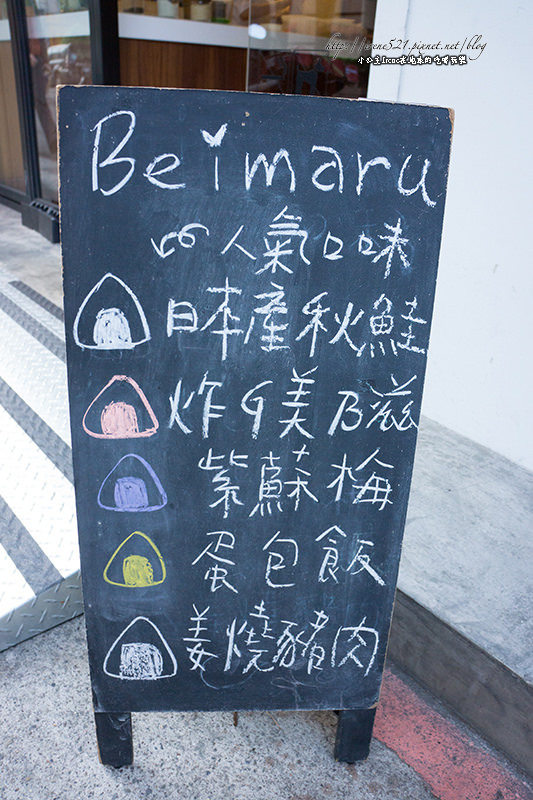 http://irene521.pixnet.net/blog
小公主Irene在地球的吃喝玩樂
Beimaru
人氣口味
日本產秋鮭
炸G美乃滋
紫蘇梅
蛋包飯
姜燒豬肉